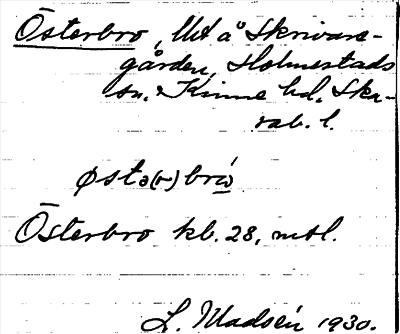 Österbro, Ut å Skrivare-
gården, Holmestads
sn. Kinne hd. Ska-
rab. l.
østə(r)brὼ
Österbro kb. 28, mtl.
L. Madsén 1930.